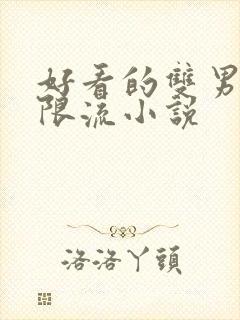 好看的雙男
限流小說
洛洛丫頭